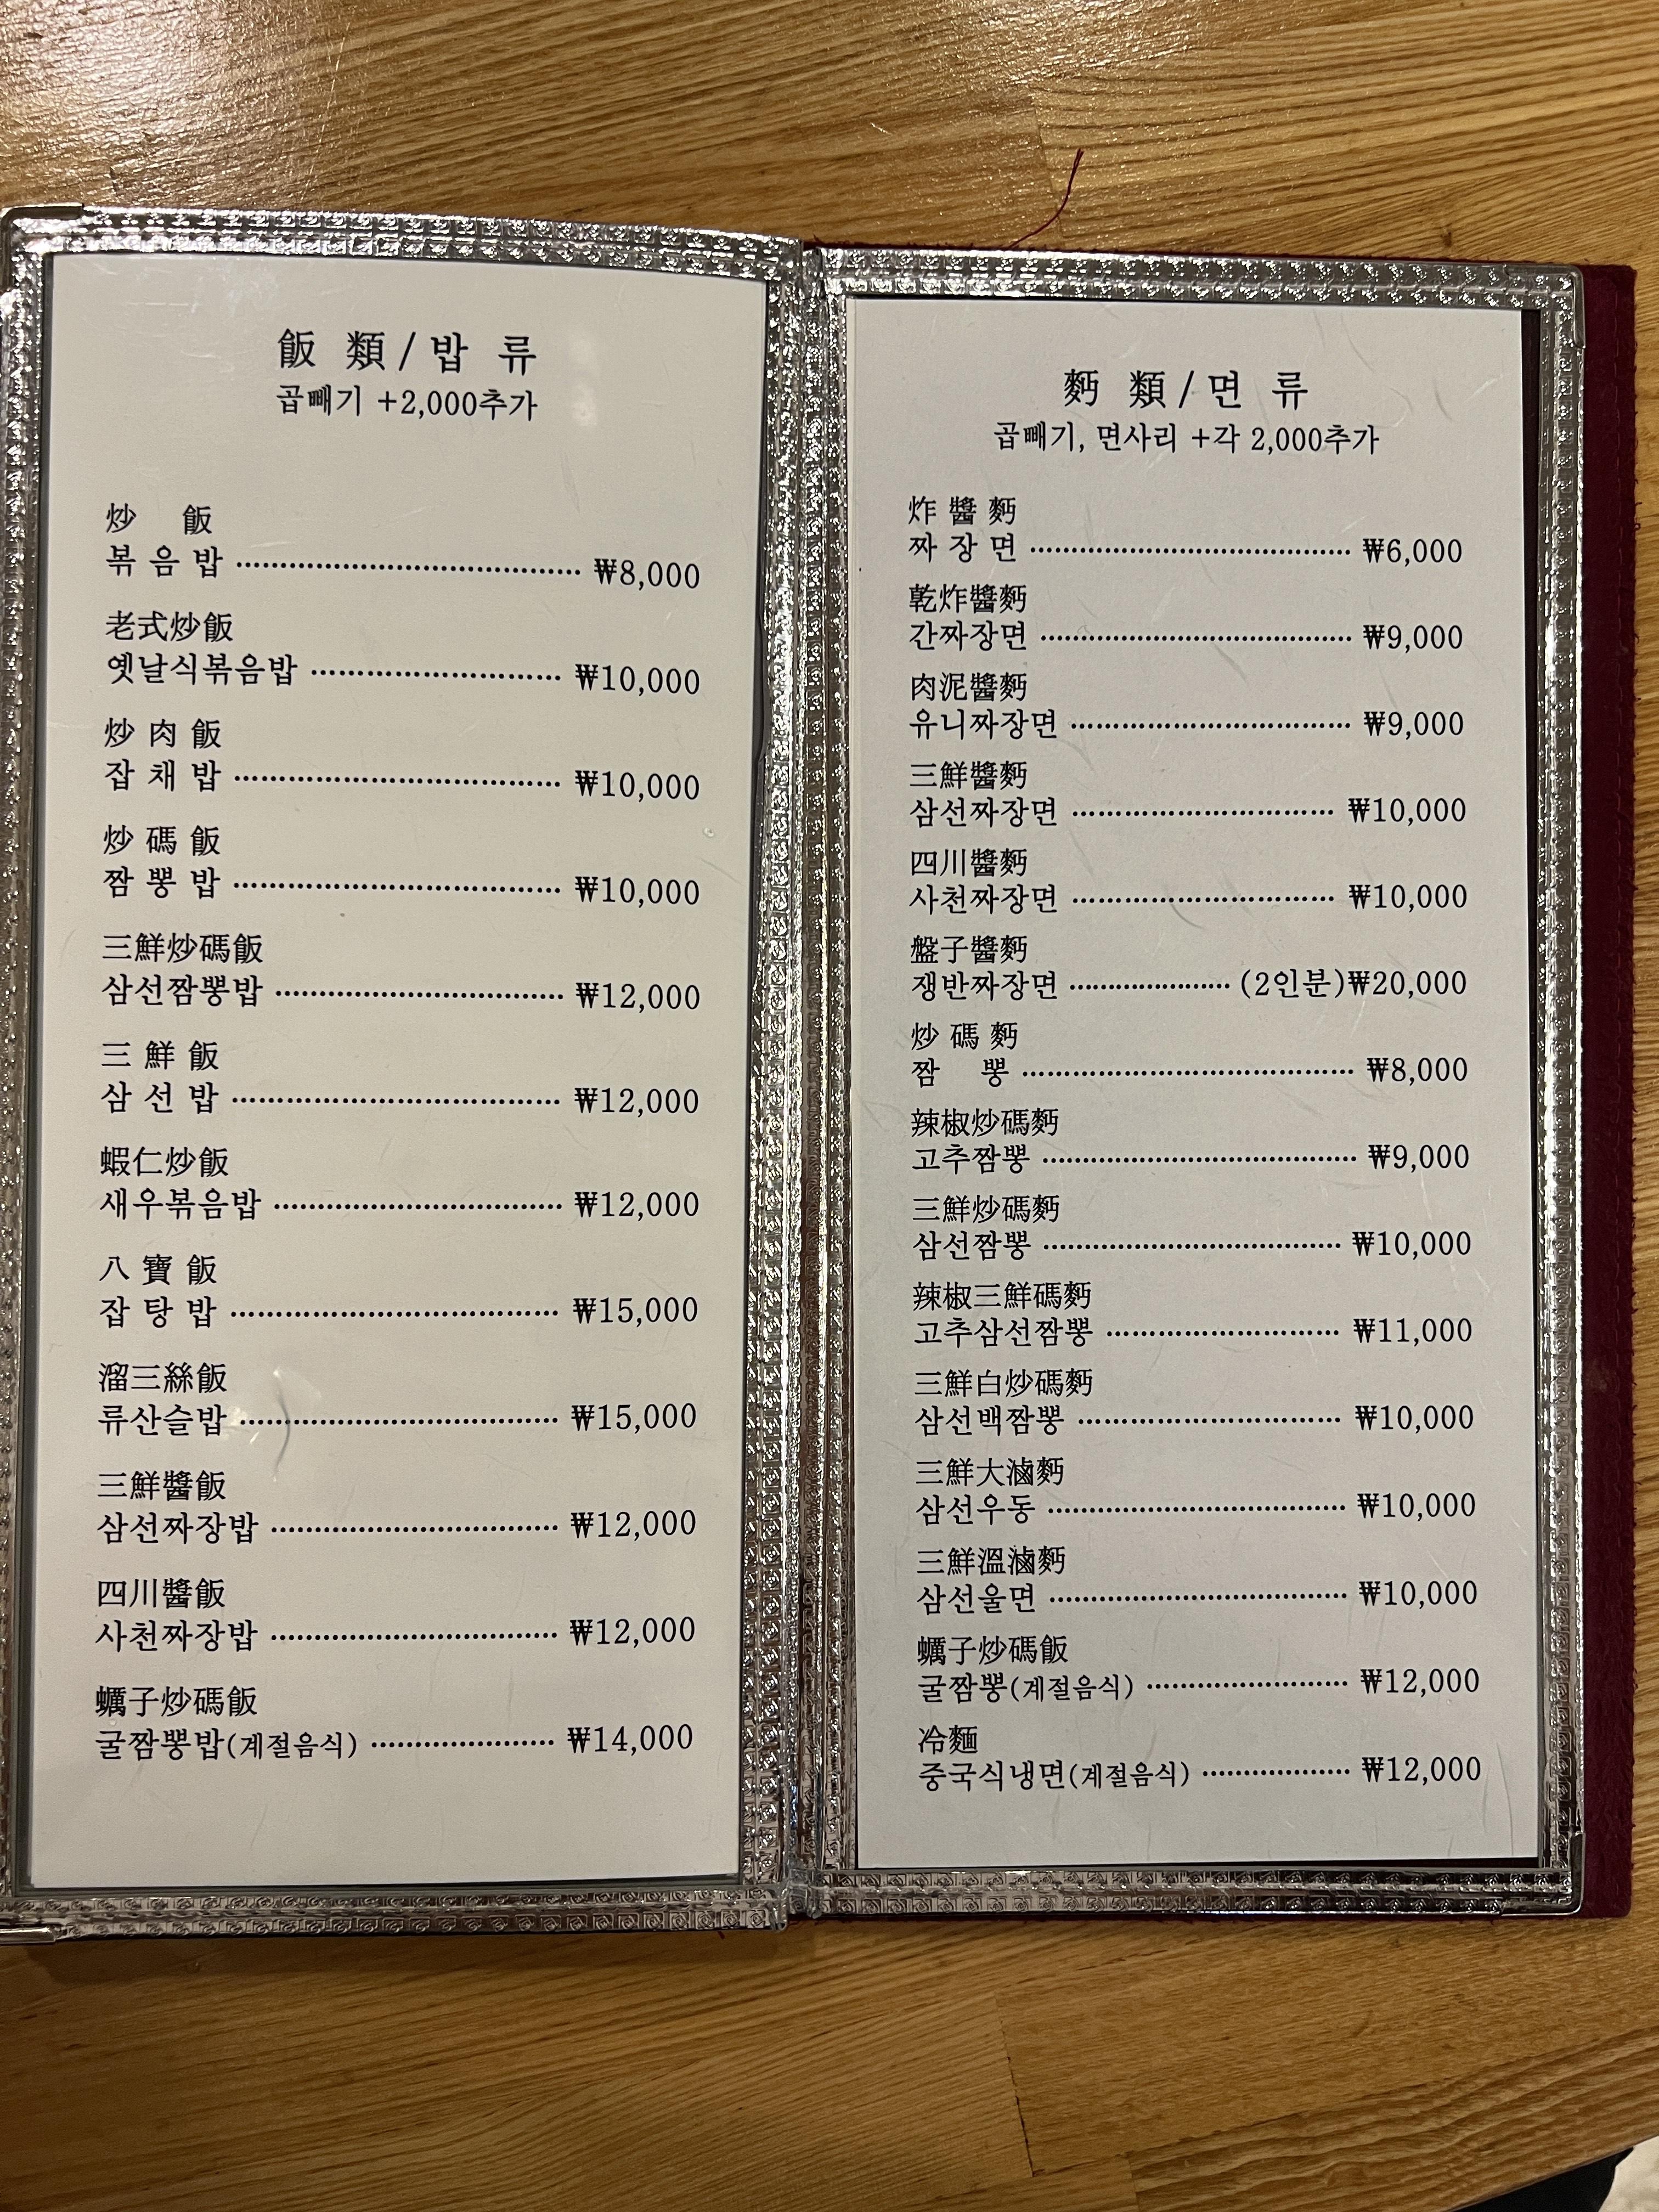 飯 類 / 밥 류
곱빼기 +2,000추가
炒 飯
볶 음 밥 ₩8,000
老式炒飯
옛날식볶음밥 ₩10,000
炒 肉 飯
잡 채 밥 ₩10,000
炒 碼 飯
짬 뽕 밥 ₩10,000
三鮮炒碼飯
삼선짬뽕밥 ₩12,000
三 鮮 飯
삼 선 밥 ₩12,000
蝦仁炒飯
새우볶음밥 ₩12,000
八 寶 飯
잡 탕 밥 ₩15,000
溜三絲飯
류산슬밥 ₩15,000
三鮮醬飯
삼선짜장밥 ₩12,000
四川醬飯
사천짜장밥 ₩12,000
蠣子炒碼飯
굴짬뽕밥(계절음식) ₩14,000
麪 類 / 면 류
곱빼기, 면사리 +각 2,000추가
炸 醬 麪
짜 장 면 ₩6,000
乾炸醬麪
간짜장면 ₩9,000
肉泥醬麪
유니짜장면 ₩9,000
三鮮醬麪
삼선짜장면 ₩10,000
四川醬麪
사천짜장면 ₩10,000
盤子醬麪
쟁반짜장면 (2인분)₩20,000
炒 碼 麪
짬 뽕 ₩8,000
辣椒炒碼麪
고추짬뽕 ₩9,000
三鮮炒碼麪
삼선짬뽕 ₩10,000
辣椒三鮮碼麪
고추삼선짬뽕 ₩11,000
三鮮白炒碼麪
삼선백짬뽕 ₩10,000
三鮮大滷麪
삼선우동 ₩10,000
三鮮溫滷麪
삼선울면 ₩10,000
蠣子炒碼飯
굴짬뽕(계절음식) ₩12,000
冷麵
중국식냉면(계절음식) ₩12,000